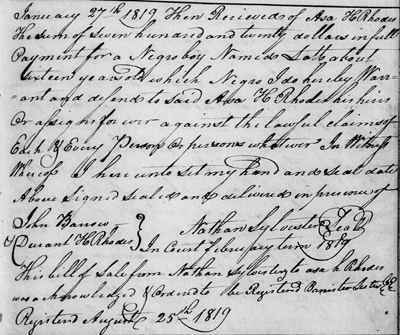 January 27th 1819 Then Recieved of Asa H Rhodes
The sum of Seven hundred and twenty dollars in full
Payment for a Negro boy Named about
Sixteen years old which Negro I do hereby Warr-
ant and defend to said Asa H Rhodes his heirs
Or assigns forever against the lawful claims of
Each & Every Person or persons whoever In Witness
Whereof I here unto set my hand and seal date
Above Signed sealed and delivered in presence of
John Barrow
Durant H Rhodes } Nathan Sylvester Seal
In Court February term 1819
This bill of Sale from Nathan Sylvester to asa h Rhodes
was acknowledged & Ordered to be Registerd Banister
Registerd August 25th 1819